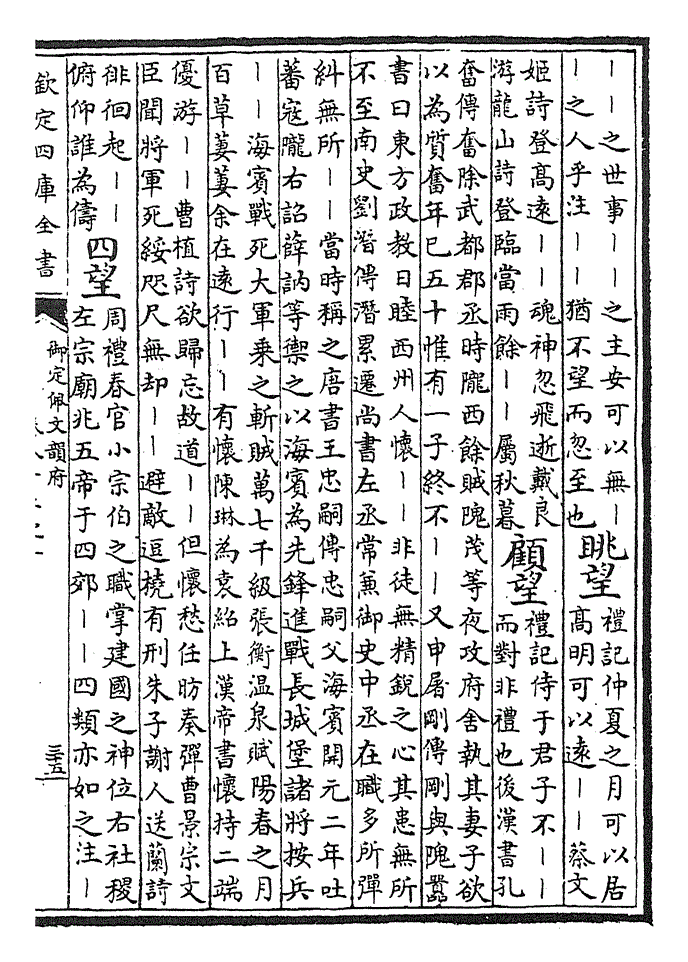 丨丨之世事丨丨之主安可以無丨
丨之人乎注丨丨猶不望而忽至也
眺望
禮記仲夏之月可以居
高明可以遠丨丨蔡文
姬詩登高遠丨丨魂神忽飛逝戴良
游龍山詩登臨當雨餘丨丨屬秋暮
顧望
禮記侍于君子不丨丨
而對非禮也後漢書孔
奮傳奮除武都郡丞時隴西餘賊隗茂等夜攻府舍執其妻子欲
以為質奮年已五十惟有一子終不丨丨又申屠剛傳剛與隗囂
書曰東方政教日睦西州人懷丨丨非徒無精銳之心其患無所
不至南史劉潛傳潛累遷尚書左丞常兼御史中丞在職多所彈
糾無所丨丨當時稱之唐書王忠嗣傳忠嗣父海賓開元二年吐
蕃寇隴右詔薛訥等禦之以海賓為先鋒進戰長城堡諸將按兵
丨丨海賓戰死大軍乘之斬賊萬七千級張衡温泉賦陽春之月
百草萋萋余在遠行丨丨有懷陳琳為袁紹上漢帝書懷持二端
優游丨丨曹植詩欲歸忘故道丨丨但懷愁任昉奏彈曹景宗文
臣聞將軍死綏咫尺無却丨丨避敵逗橈有刑朱子謝人送蘭詩
徘徊起丨丨
俯仰誰為儔
四望
周禮春官小宗伯之職掌建國之神位右社稷
左宗廟兆五帝于四郊丨丨四類亦如之注丨
欽定四庫全書
御定佩文韻府
三十五